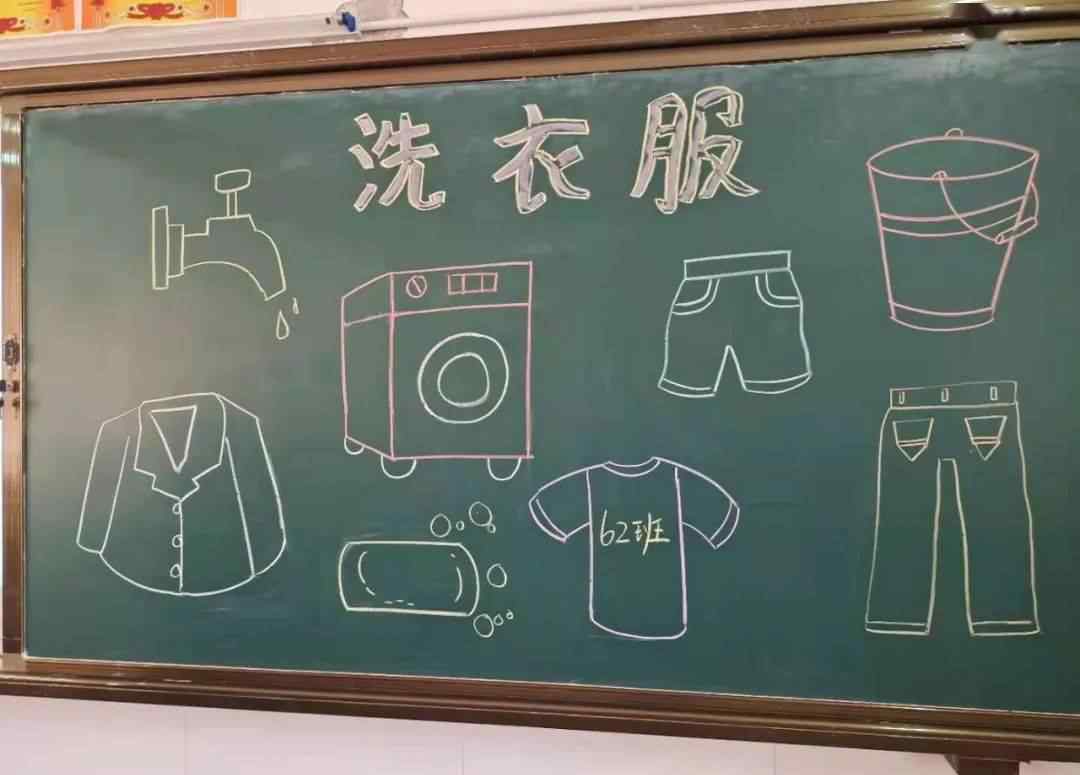 洗衣服
62班